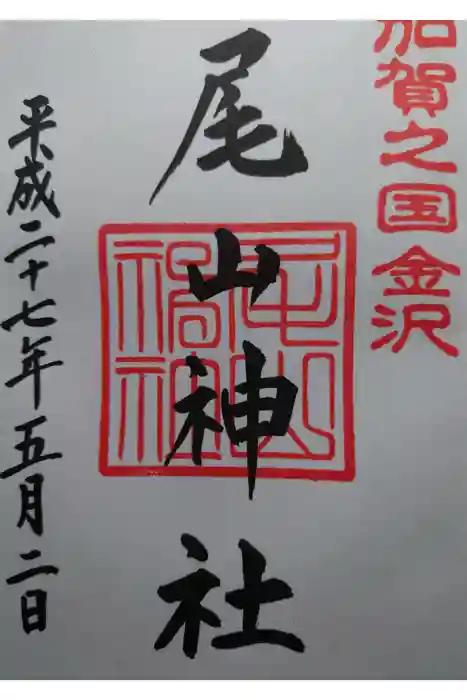 加賀之国金沢
尾山神社
尾山神社
平成二十七年五月二日